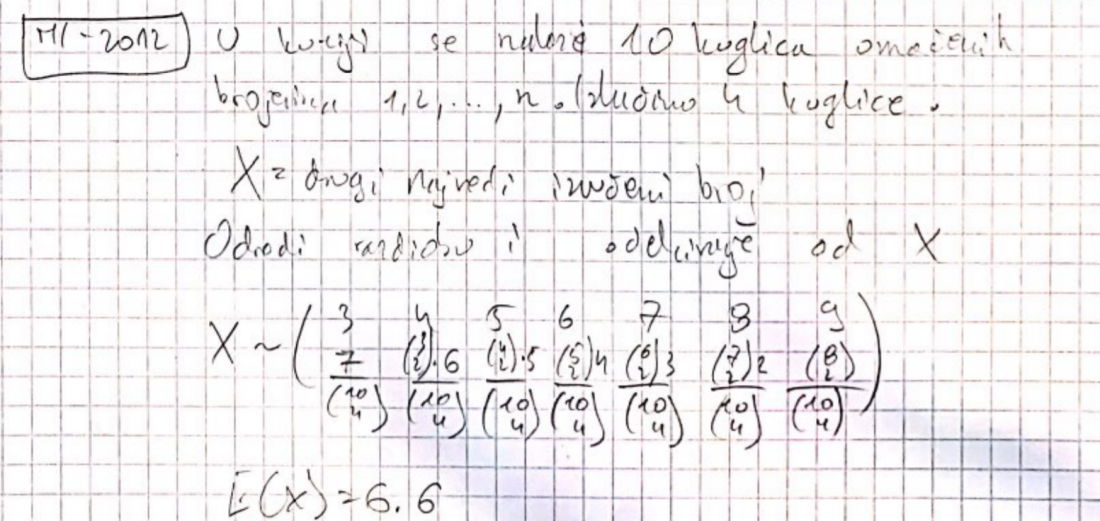 MI-2012 U kutiji se nalazi 10 kuglica označenih
brojevima 1,2,...,n. Izvučemo 4 kuglice.
X = drugi najveći izvučeni broj
Odredi razdiobu i očekivanje od X
X ~ ( 3 4 5 6 7 8 9
7 (3 2)·6 (4 2)·5 (5 2)4 (6 2)3 (7 2)2 (8 2)
(10 4) (10 4) (10 4) (10 4) (10 4) (10 4) (10 4) )
E(X) = 6.6